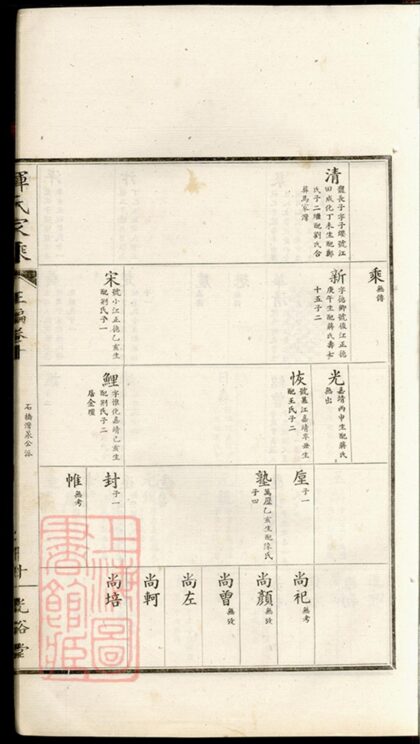 清
龍長子字子纓號江
田成化丁未生配鄭
氏子二繼配劉氏合
葬馬家灣
乘
無傳
新
字德卿號儀江正德
庚午生配蔣氏壽六
十五子二
宋
號小江正德乙亥生
配劉氏子一
光
嘉靖丙申生配蔣氏
無出
恢
號蕙江嘉靖辛丑生
配王氏子二
鯉
字惟化嘉靖乙亥生
配劉氏子二
居金壇
垕
子一
塾
萬歷乙亥生配陳氏
子四
封
子一
帷
無考
尚祀
無考
尚顏
無攷
尚曾
無攷
尚左
尚軻
尚培
惲氏家乘
正編卷十
石橋灣某公派
光裕堂
上海圖
書館藏